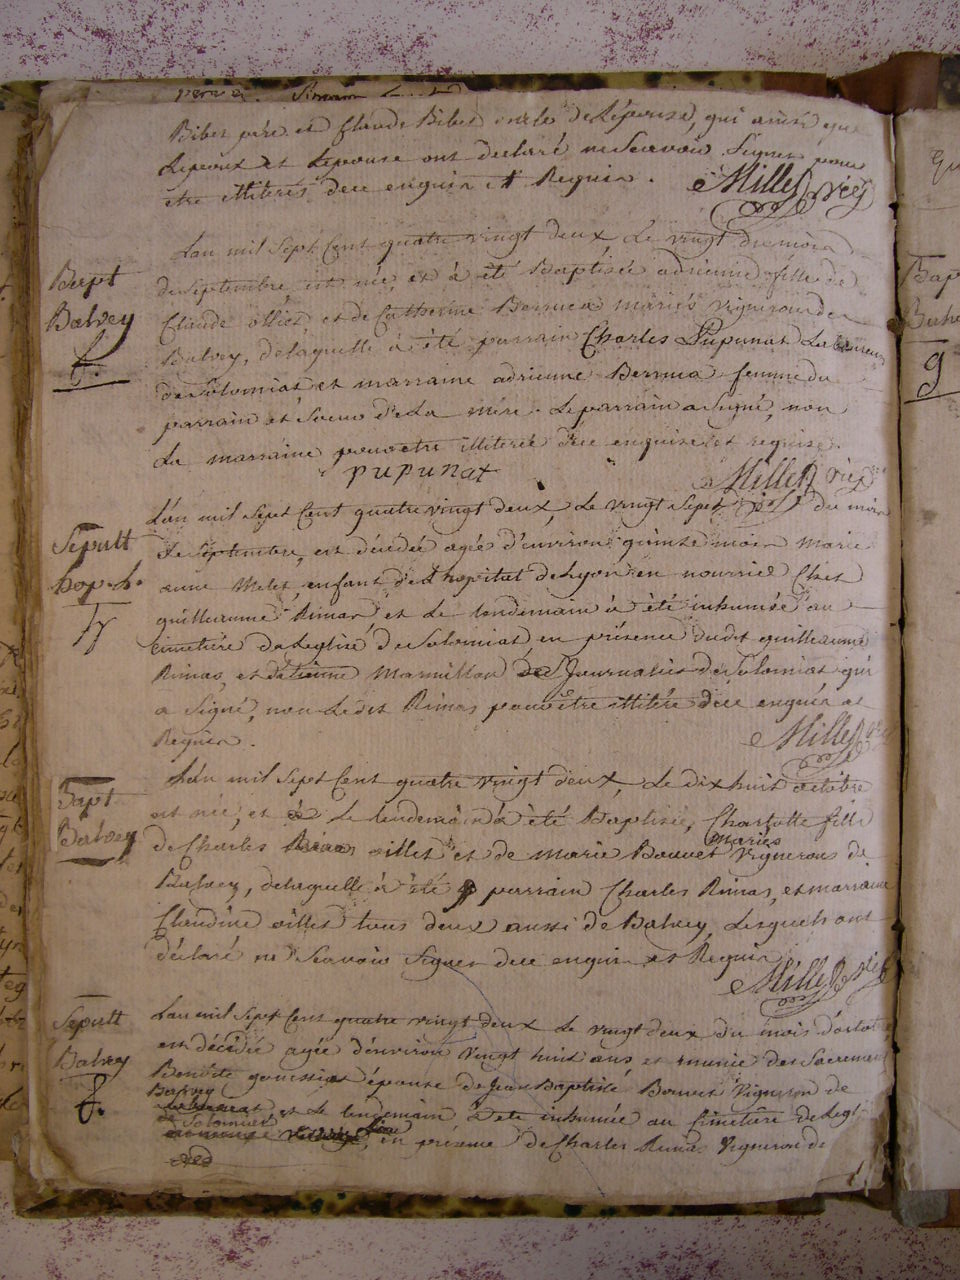 Bibet père et Claude Bibet oncle de Lépouse, qui ainsi que
Lepoux et Lepouse ont declaré ne Scavoir Signer pour
etre illiterés dece enquis et Requis. Millet vic
Lan mil Sept Cent quatre vingt deux Le vingt du mois
de Septembre est née, et à été Baptisée adrienne fille de
Claude ollier et de Catherine mariés vignerons de
Balvey, delaquelle à été parrain Charles Pupunat
de Solomiat et marraine adrienne femme du
parrain et Soeur de La mère. Le parrain a Signé, non
La marraine pour etre illiterée dece enquise et requise.
pupunat Millet vic
Bapt
Balvey
f.
L'an mil Sept Cent quatre vingt deux, Le vingt Sept du mois
de Septembre, est décédée agée d'environ quinze mois Marie
anne Melet, enfant de L'hopital de Lyon en nourrice Chez
guilleaume Rimas et Le lendemain à été inhumée au
cimetière de Leglise de Solomiat en présence dudit guilleaume
Rimas, et d'étienne Marmillon Journalier de Solomiat qui
a Signé, non Ledit Rimas pour être illitéré dece enquis et
Requis. Millet vic
Sepult
hop. L.
L'an mil Sept Cent quatre vingt deux, Le dix huit octobre
est née, et Le lendemain à été Baptisée, Charlotte fille
de Charles oillet et de Marie Bouvet mariés Vignerons de
Balvey, delaquelle à été parrain Charles Rimas, et marraine
Claudine oillet tous deux aussi de Balvey, Lesquels ont
déclaré ne Scavoir Signer dece enquis et Requis. Millet vic
Bapt
Balvey
L'an mil Sept Cent quatre vingt deux Le vingt deux du mois d'octobre
est décédée agée d'environ vingt huit ans et munie des Sacremens
Benoite épouse de Jean Baptiste Bouvet Vigneron de
Balvey, et Le lendemain à été inhumée au Cimetière de Legl
Solomiat en présence de Charles Rimas Vigneron de
Sepult
Balvey
f.